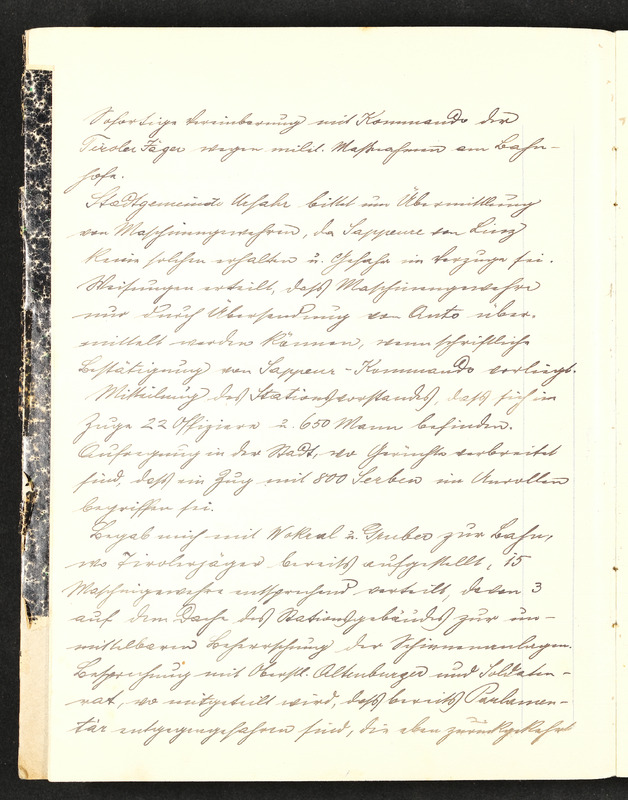 Sofortige Vereinbarung mit Kommando der
Tiroler Jäger wegen milit. Maßnahmen am Bahn-
hofe.
Stadtgemeinde Urfahr bittet um Übermittlung
von Maschinengewehren, da Sappeure von Linz
keine solchen erhalten u. Gefahr im Verzuge sei.
Weisungen erteilt, daß Maschinengewehre
nur durch Übersendung von Auto über-
mittelt werden können, wenn schriftliche
Bestätigung von Sappeur-Kommando vorliegt.
Mitteilung des Stationsvorstandes, daß sich im
Zuge 22 Offiziere u. 650 Mann befinden.
Aufregung in der Stadt, wo Gerüchte verbreitet
sind, daß ein Zug mit 800 Serben im Anrollen
begriffen sei.
Begab mich mit Wokral u. Gruber zur Bahn,
wo Tirolerjäger bereits aufgestellt, 15
Maschingewehre entsprechend verteilt, davon 3
auf dem Dache des Stationsgebäudes zur un-
mittelbaren Beherrschung der Schienenanlagen.
Besprechung mit Oberstl. Altenburger und Soldaten-
rat, wo mitgeteilt wird, daß bereits Parlamen-
tär entgegengefahren sind, die eben zurückgekehrt